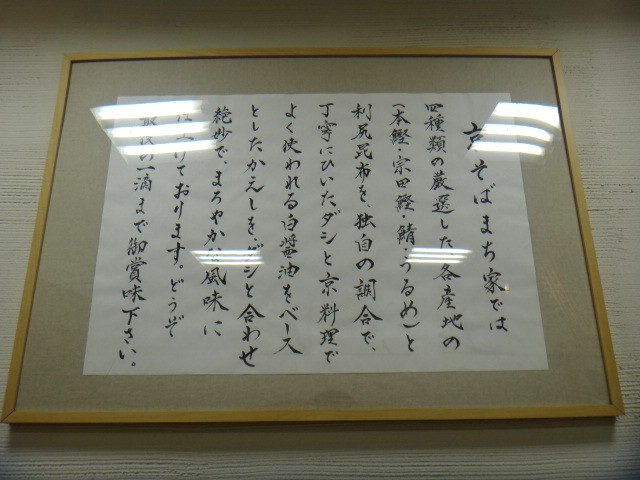 京そばまち家では
四種類の厳選した各産地の
(本鰹・宗田鰹・鯖・うるめ)と
利尻昆布を、独自の調合で、
丁寧にひいたダシと京料理で
よく使われる白醤油をベース
としたかえしをダシと合わせ
絶妙で、まろやかな風味に
上げております。どうぞ
最後の一滴まで御賞味下さい。